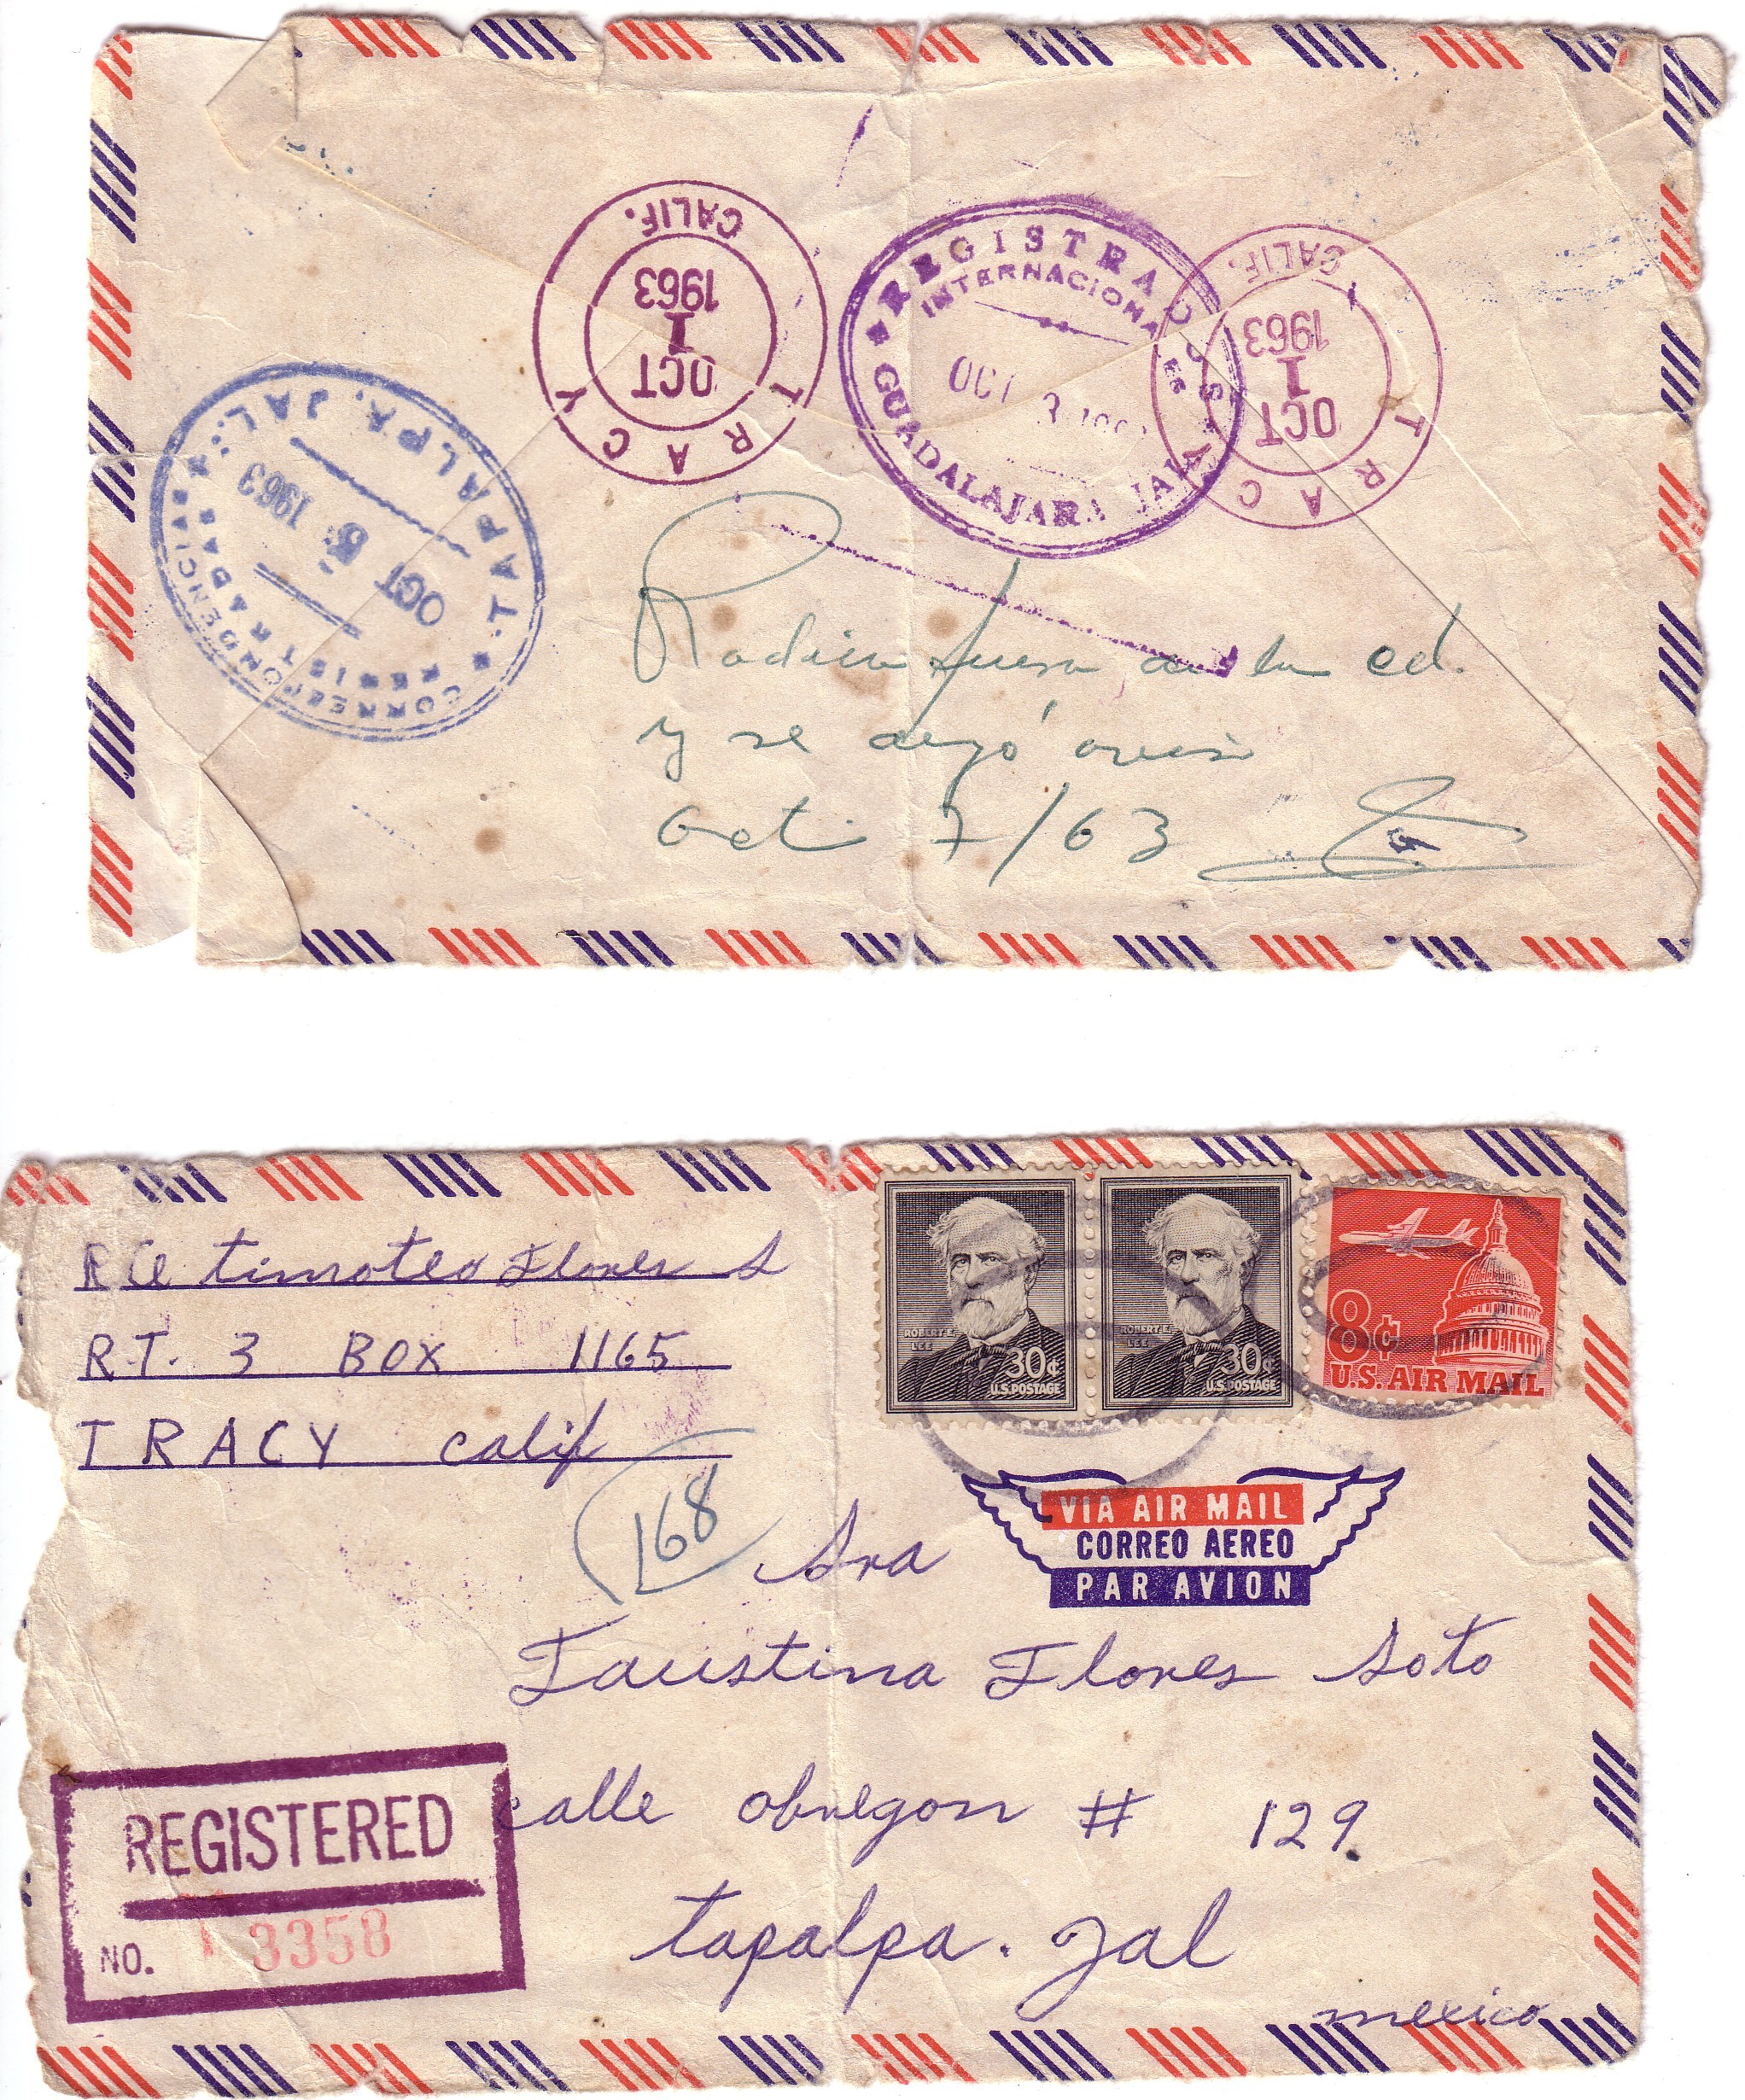 CALIF.
1963
1
OCT
TRACY
REGISTRADOS
INTERNACIONA
OCT 3
GUADALAJARA JAL
CALIF.
1963
1
OCT
TRACY
TAPALPA, JAL.
OCT 5 1963
CORRESPONDENCIAS
REGISTRADAS
Radica fuera de la cd.
y se dejó aviso
Oct 7/63
timoteo Flores S
RT. 3 BOX 1165
TRACY calif
168
ROBERT E. LEE
30¢
U.S. POSTAGE
ROBERT E. LEE
30¢
U.S. POSTAGE
8¢
U.S. AIR MAIL
VIA AIR MAIL
CORREO AEREO
PAR AVION
Sra
Faustina Flores Soto
calle obregon # 129
tapalpa. Jal
mexico
REGISTERED
NO. 3358